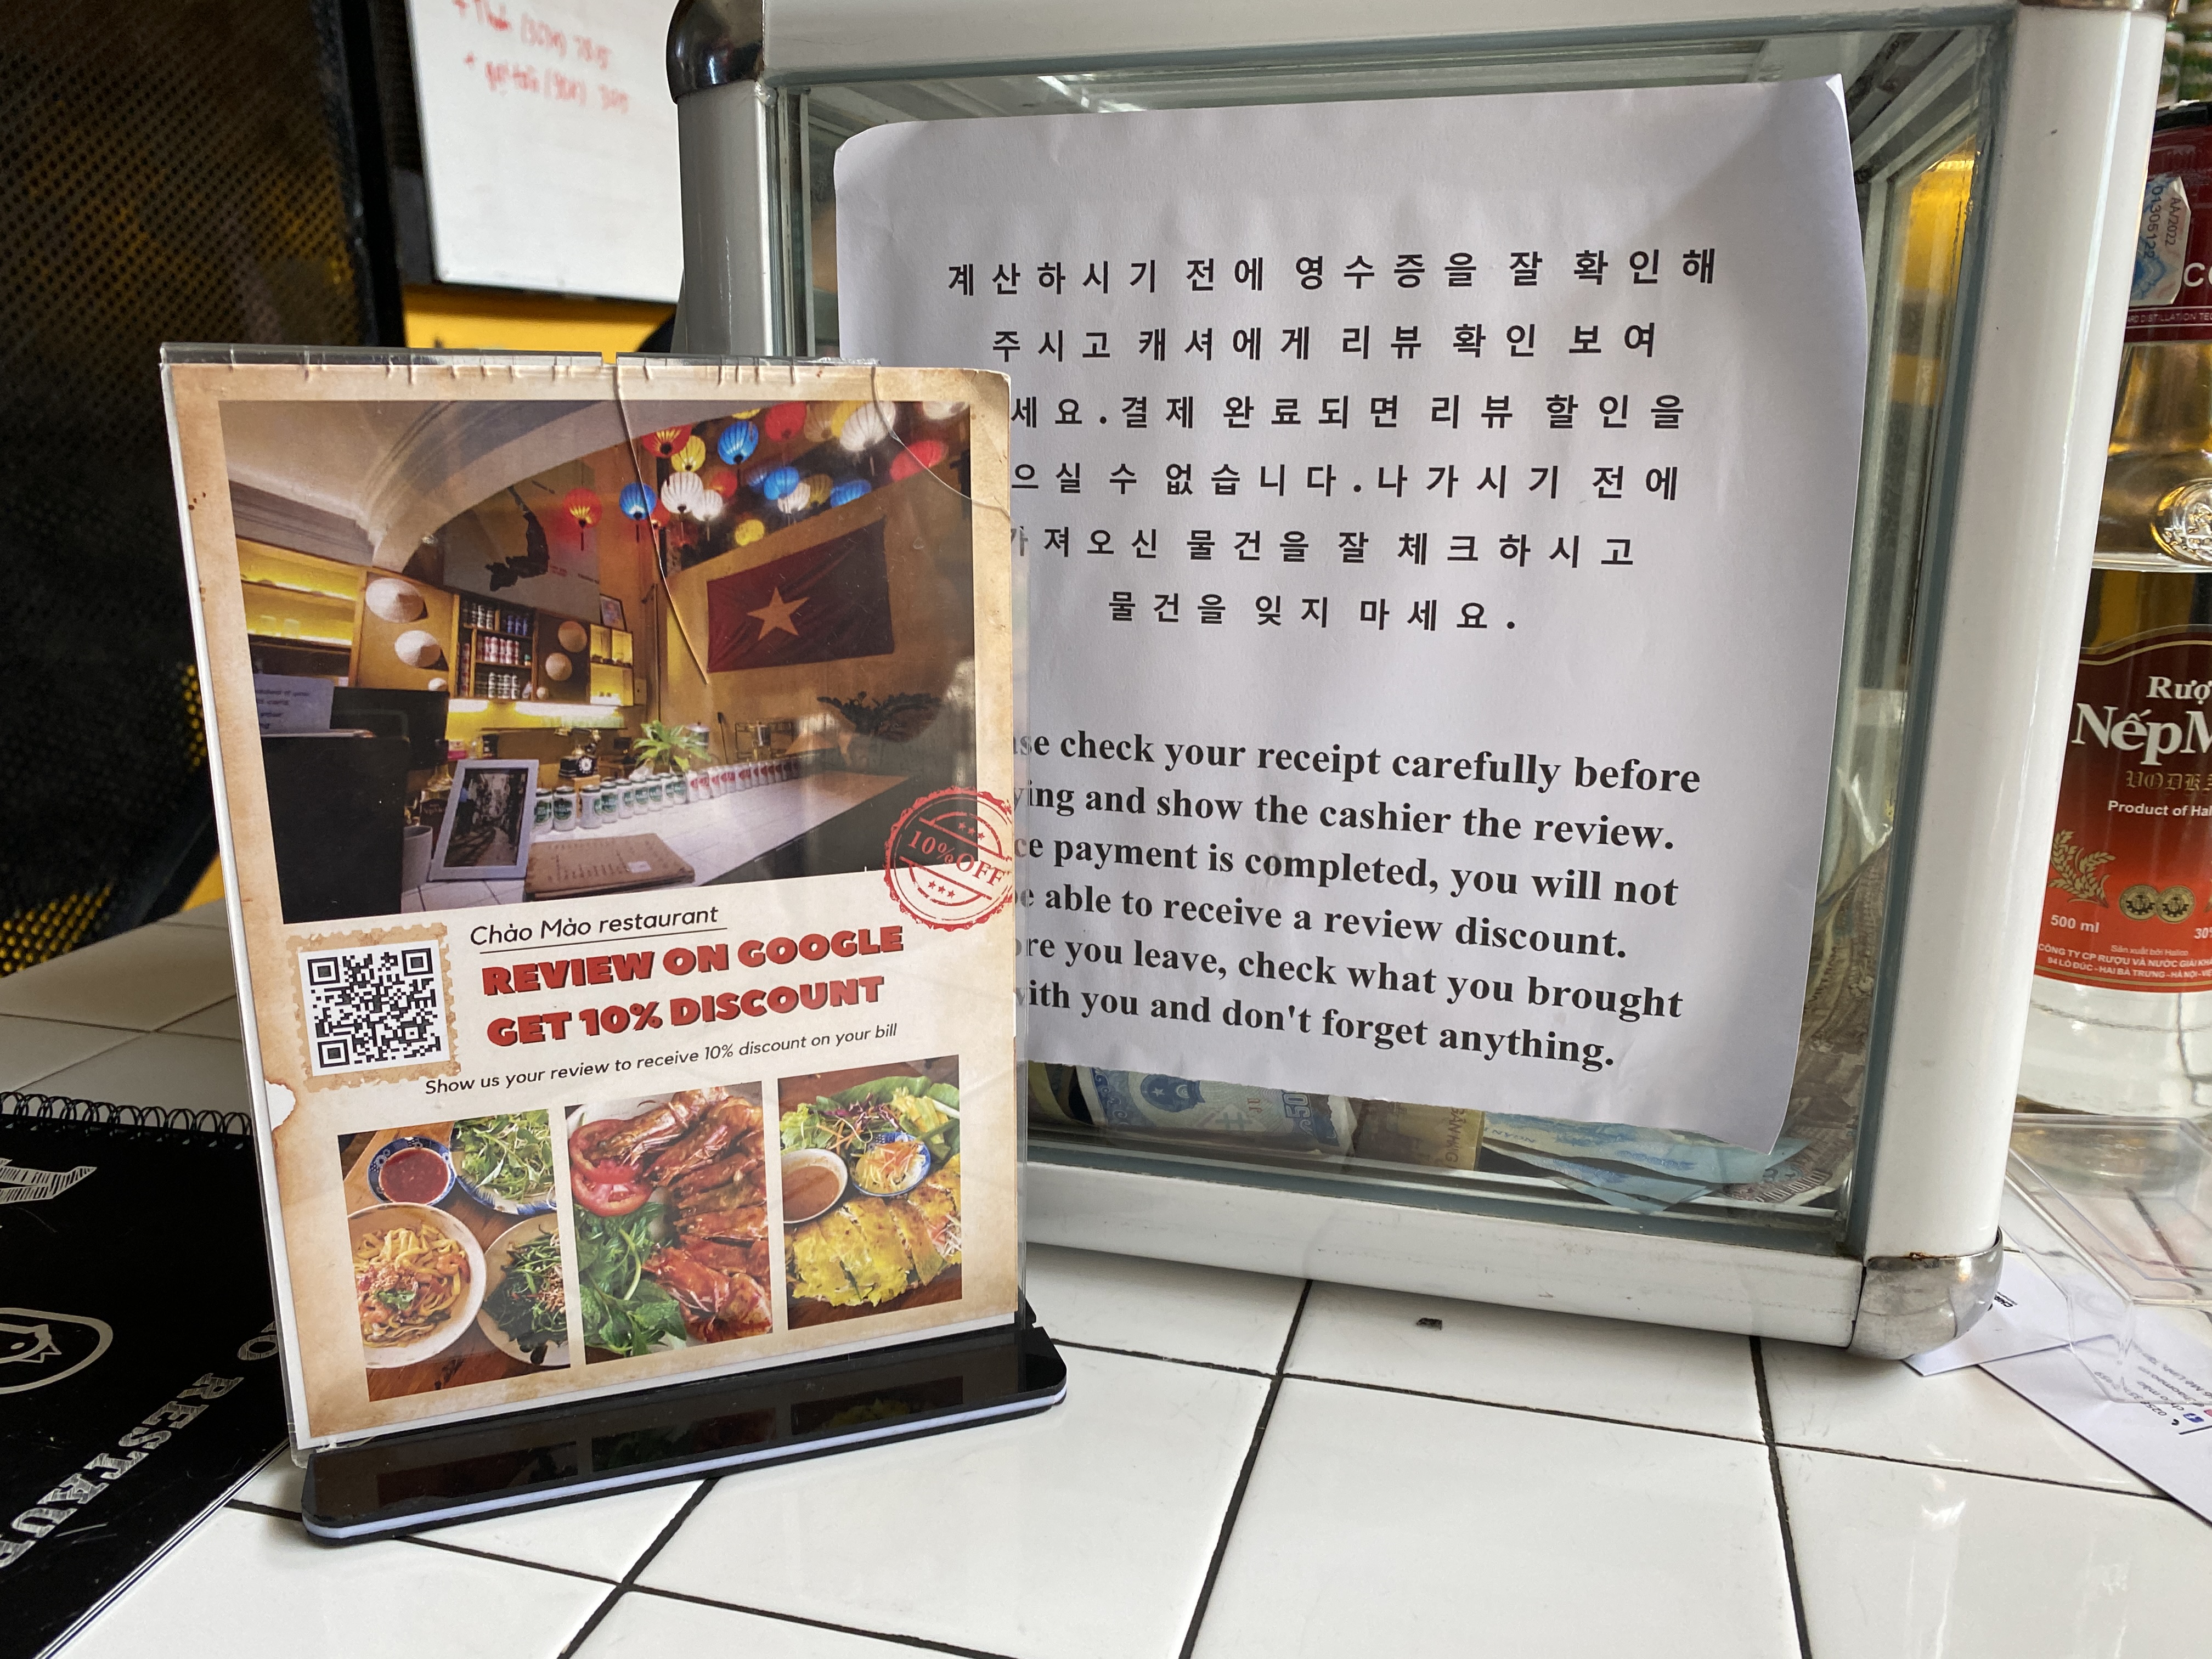 계산하시기 전에 영수증을 잘 확인해
주시고 캐셔에게 리뷰 확인 보여
세요.결제 완료되면 리뷰 할인을
으실 수 없습니다.나가시기 전에
져오신 물건을 잘 체크하시고
물건을 잊지 마세요.
check your receipt carefully before
and show the cashier the review.
payment is completed, you will not
able to receive a review discount.
you leave, check what you brought
with you and don't forget anything.
10% OFF
Chào Mào restaurant
REVIEW ON GOOGLE
GET 10% DISCOUNT
Show us your review to receive 10% discount on your bill
RESTAUR
AA/2022
01305122
Nếp
VODK
Product of
500 ml
Sản xuất bởi Halico
CÔNG TY CP RƯỢU VÀ NƯỚC GIẢI
94 LÒ ĐÚC - HAI BÀ TRƯNG - HÀ NỘI